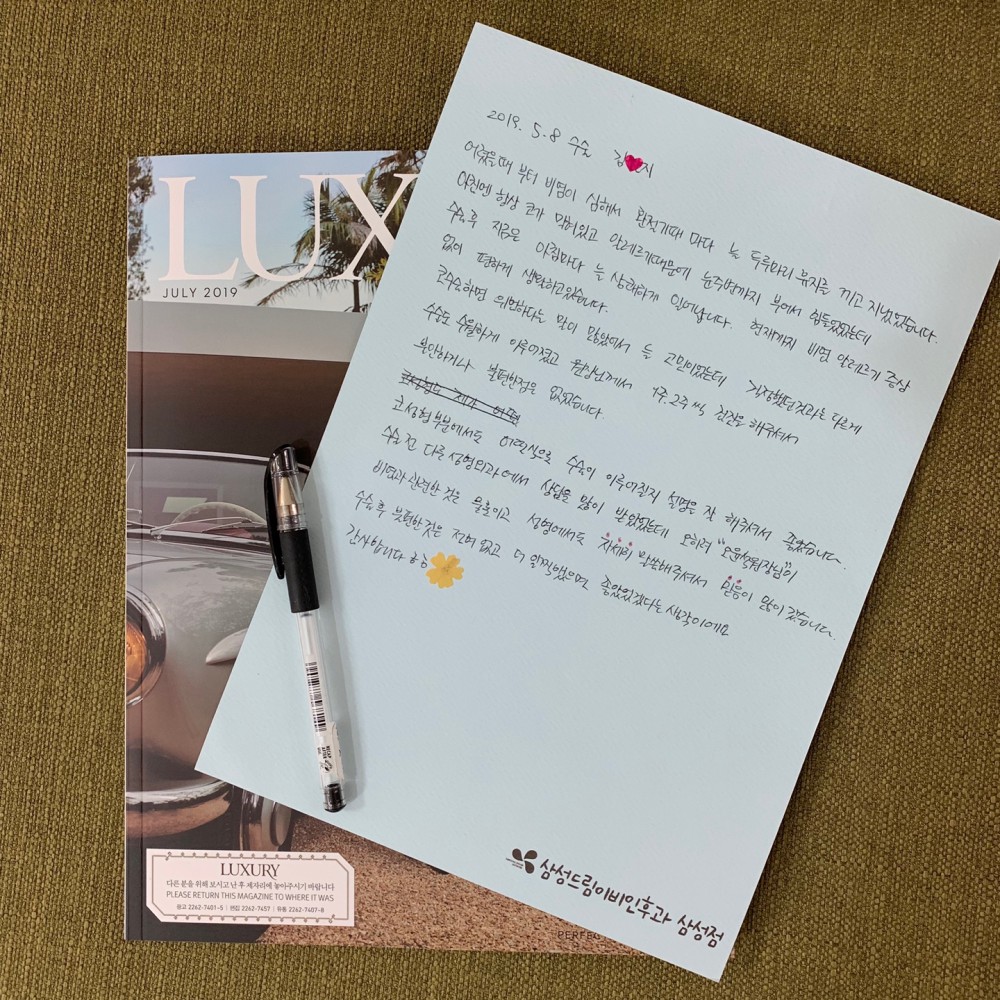 LUX
JULY 2019
2019. 5.8 수술 김 지
어렸을때 부터 비염이 심해서 환절기때 마다 늘 두루마리 휴지를 끼고 지냈었습니다.
아침엔 항상 코가 막혀있고 알레르기때문에 눈주변까지 부어서 힘들었었는데
수술후 지금은 아침마다 늘 상쾌하게 일어납니다. 현재까지 비염 알레르기 증상
없이 편하게 생활하고있습니다.
코수술하면 위험하다는 말이 많았어서 늘 고민이었는데 걱정했던것과는 다르게
수술도 수월하게 이루어졌고 원장님께서 1주.2주씩 점검을 해주셔서
불안하거나 불편한점은 없었습니다.
코성형부분에서도 어떤식으로 수술이 이루어질지 설명을 잘 해주셔서 좋았습니다.
수술 전 다른 성형외과에서 상담을 많이 받았었는데 오히려 "오윤석원장님"이
비염과 관련한 것은 물론이고 성형에서도 자세히 말씀해주셔서 믿음이 많이 갔습니다.
수술후 불편한것은 전혀 없고 더 일찍했으면 좋았었겠다는 생각이에요
감사합니다 ㅎㅎ
삼성드림이비인후과 삼성점
LUXURY
다른 분을 위해 보시고 난 후 제자리에 놓아주시기 바랍니다
PLEASE RETURN THIS MAGAZINE TO WHERE IT WAS
광고 2262-7401~5 | 편집 2262-7457 | 유통 2262-7407~8